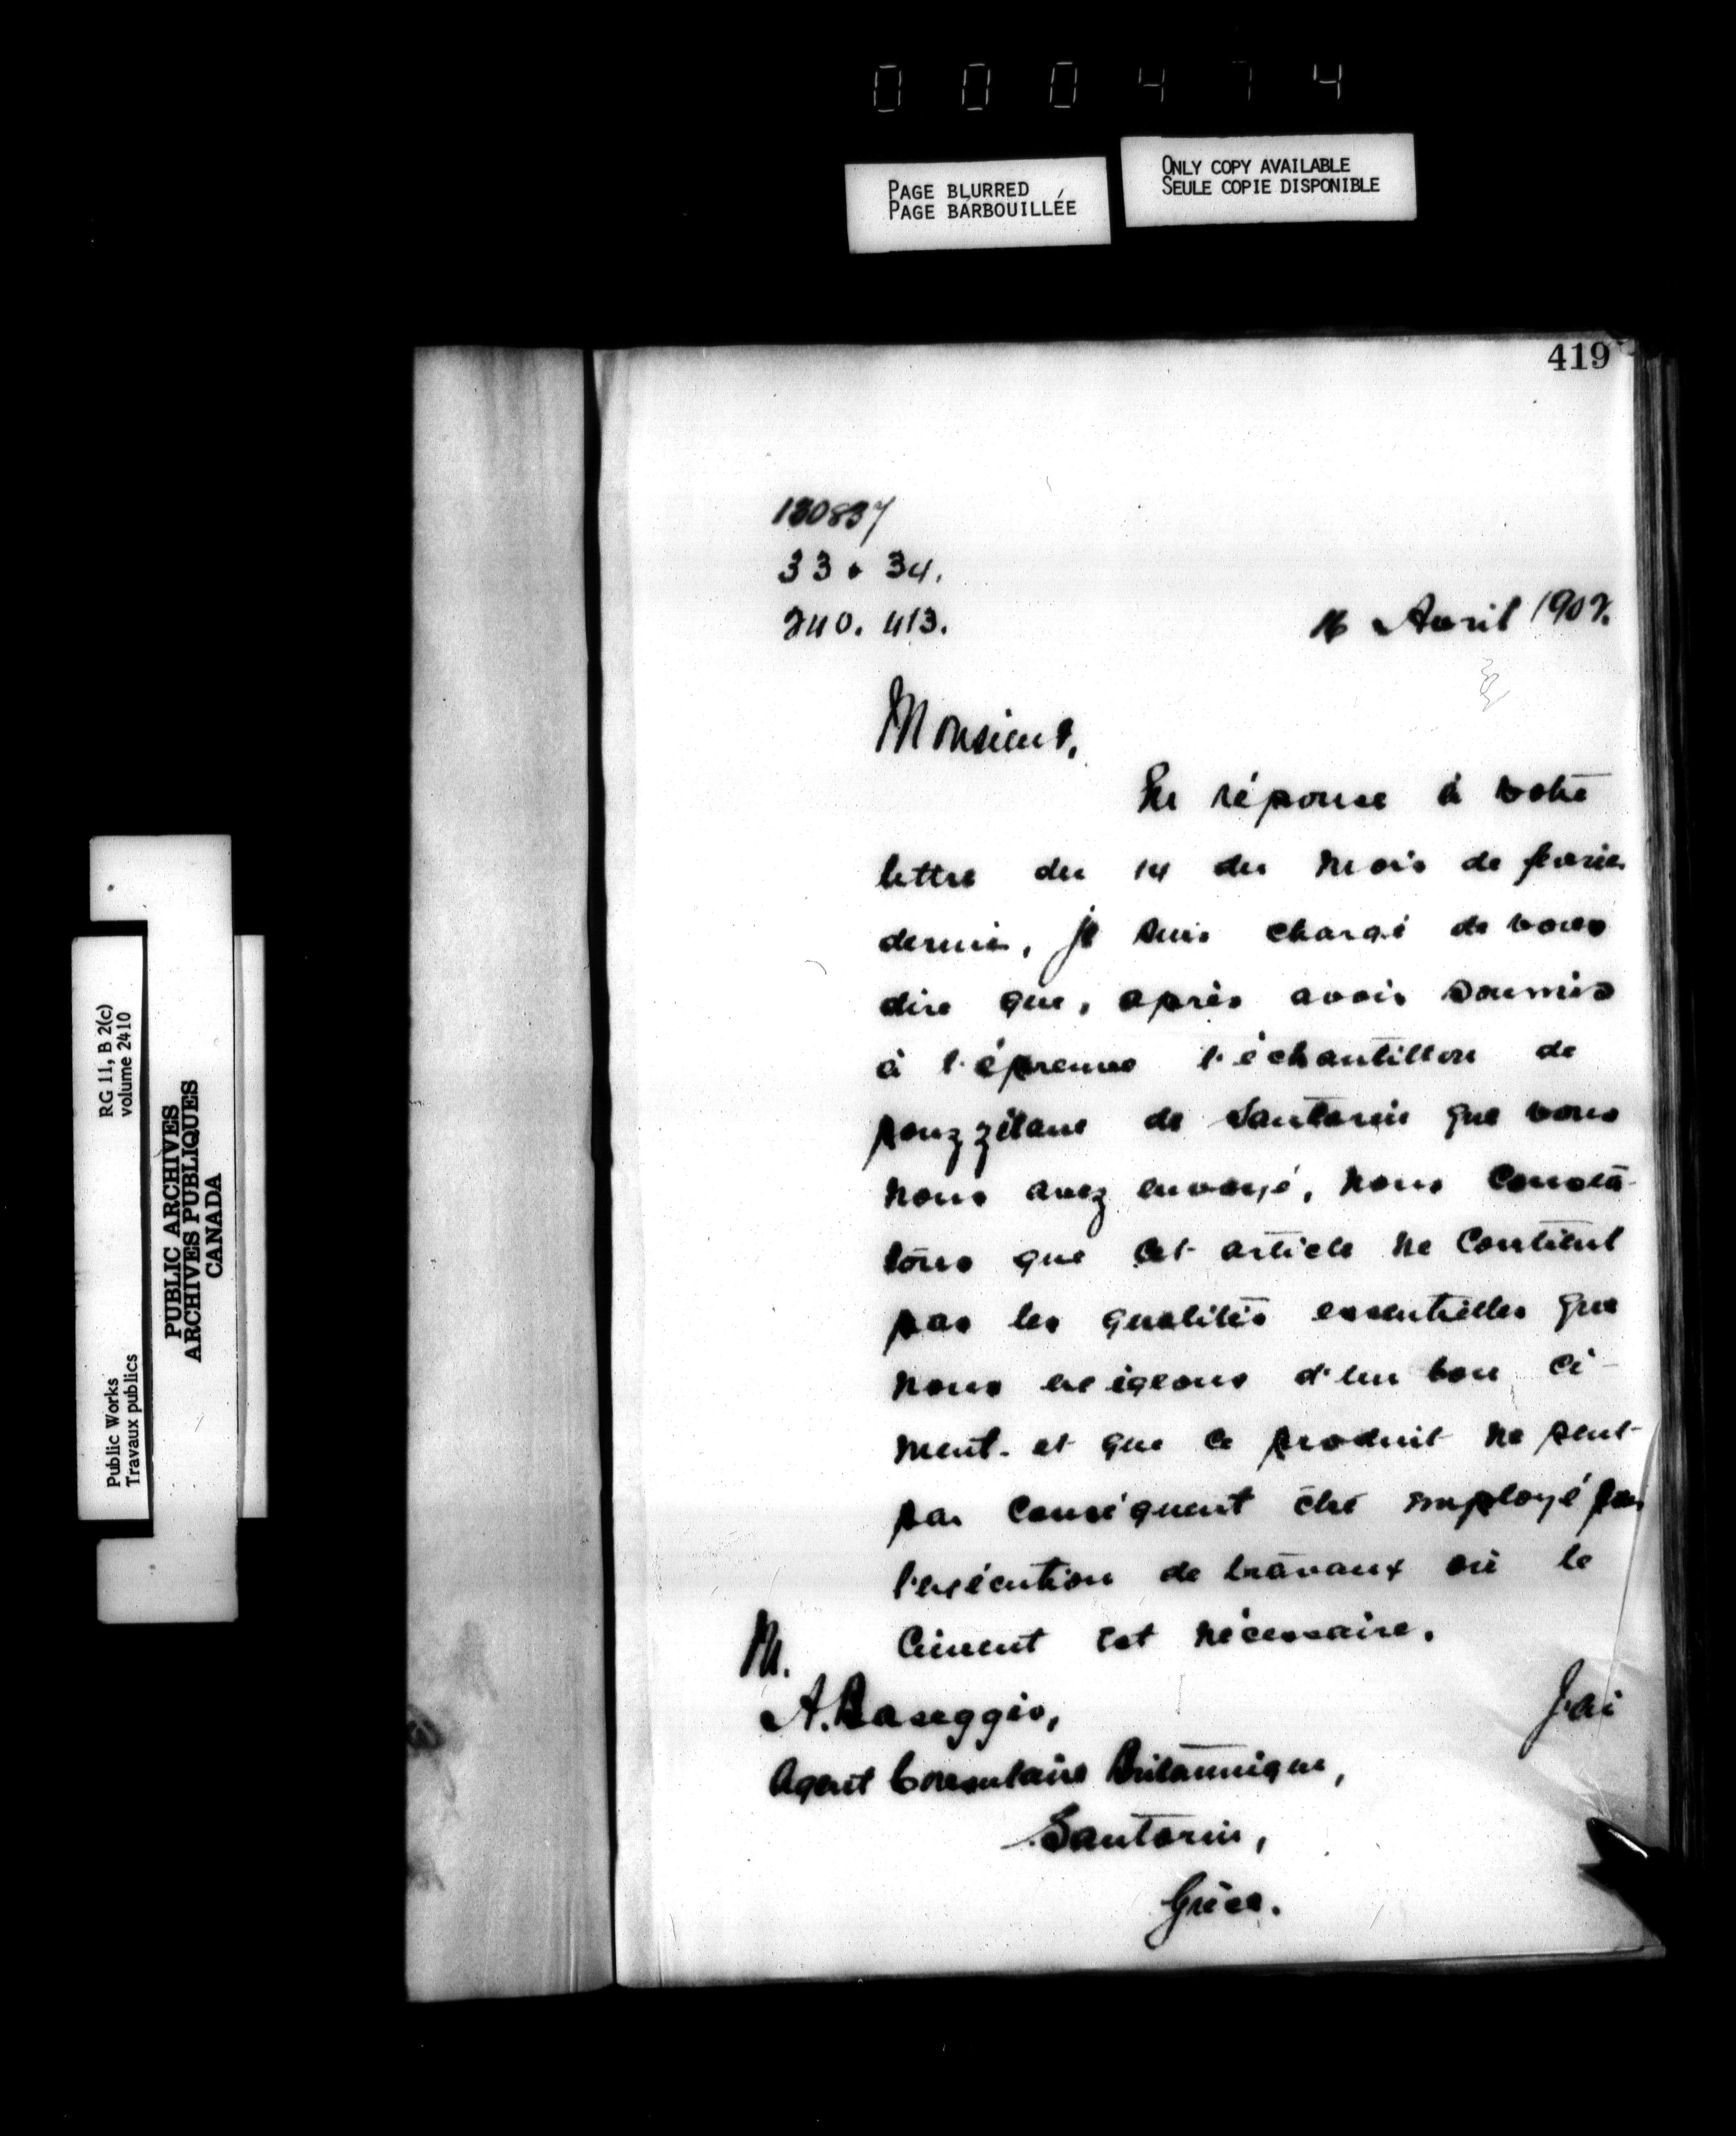 000474
PAGE BLURRED
PAGE BARBOUILLÉE
ONLY COPY AVAILABLE
SEULE COPIE DISPONIBLE
419
130837
33 & 34.
240. 413.
16 Avril 1902.
Monsieur,
En réponse à votre
lettre du 14 du mois de fevrier
dernier, je suis chargé de vous
dire que, après avoir soumis
à l'épreuve l'échantillon de
pouzzolane de Santorin que vous
nous avez envoyé, nous consta-
tons que cet article ne contient
pas les qualités essentielles que
nous exigeons d'un bon ci-
ment et que ce produit ne peut
par conséquent être employé pour
l'exécution de travaux où le
ciment est nécessaire.
J'ai
M.
A. Baseggio,
Agent Consulaire Britannique,
Santorin,
Grèce.
Public Works
Travaux publics
RG 11, B 2(c)
volume 2410
PUBLIC ARCHIVES
ARCHIVES PUBLIQUES
CANADA